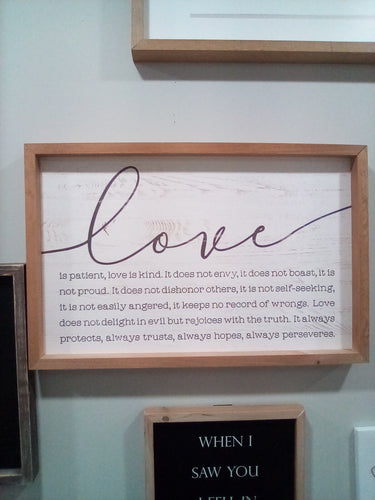 love
is patient, love is kind. It does not envy, it does not boast, it is
not proud. It does not dishonor others, it is not self-seeking,
it is not easily angered, it keeps no record of wrongs. Love
does not delight in evil but rejoices with the truth. It always
protects, always trusts, always hopes, always perseveres.
WHEN I
SAW YOU
I FELL IN